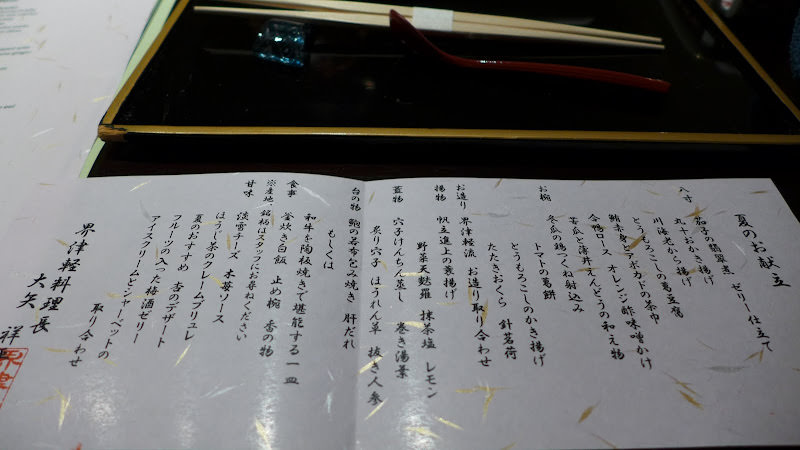 夏のお献立
八寸
茄子の翡翠煮 ゼリー仕立て
丸十おかき揚げ
川海老から揚げ
とうもろこしの葛豆腐
鮪赤身とアボカドの茶巾
合鴨ロース オレンジ酢味噌かけ
苦瓜と薄井えんどうの和え物
お椀
冬瓜の鶏つくね射込み
トマトの葛餅
とうもろこしのかき揚げ
たたきおくら 針茗荷
お造り 界津軽流 お造り取り合わせ
揚物 帆立進上の蓑揚げ
野菜天麩羅 抹茶塩 レモン
蓋物 穴子けんちん蒸し 巻き湯葉
炙り穴子 ほうれん草 抜き人参
台の物 鮑の若布包み焼き 肝だれ
もしくは
和牛を陶板焼きで堪能する一皿
食事 釜炊き白飯 止め椀 香の物
※産地、銘柄はスタッフにお尋ねください
甘味 淡雪チーズ 木苺ソース
ほうじ茶のクレームブリュレ
夏のおすすめ 杏のデザート
フルーツの入った梅酒ゼリー
アイスクリームとシャーベットの
取り合わせ
界津軽料理長
大矢 祥